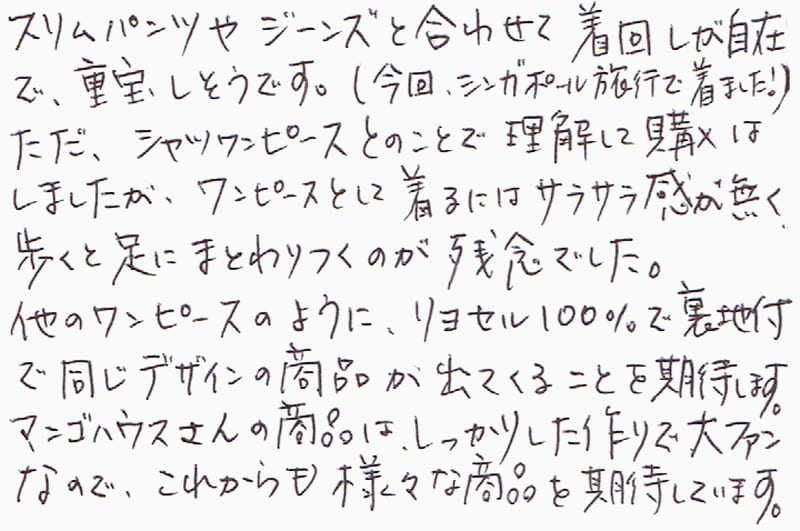 スリムパンツや ジーンズと合わせて 着回しが自在
で、重宝しそうです。(今回、シンガポール旅行で着ました!)
ただ、シャツワンピースとのことで 理解して購入は
しましたが、ワンピースとして着るにはサラサラ感が無く
歩くと足にまとわりつくのが残念でした。
他のワンピースのように、リヨセル100%で裏地付
で同じデザインの商品が出てくることを期待します。
マンゴハウスさんの商品は、しっかりした作りで大ファン
なので、これからも様々な商品を期待しています。